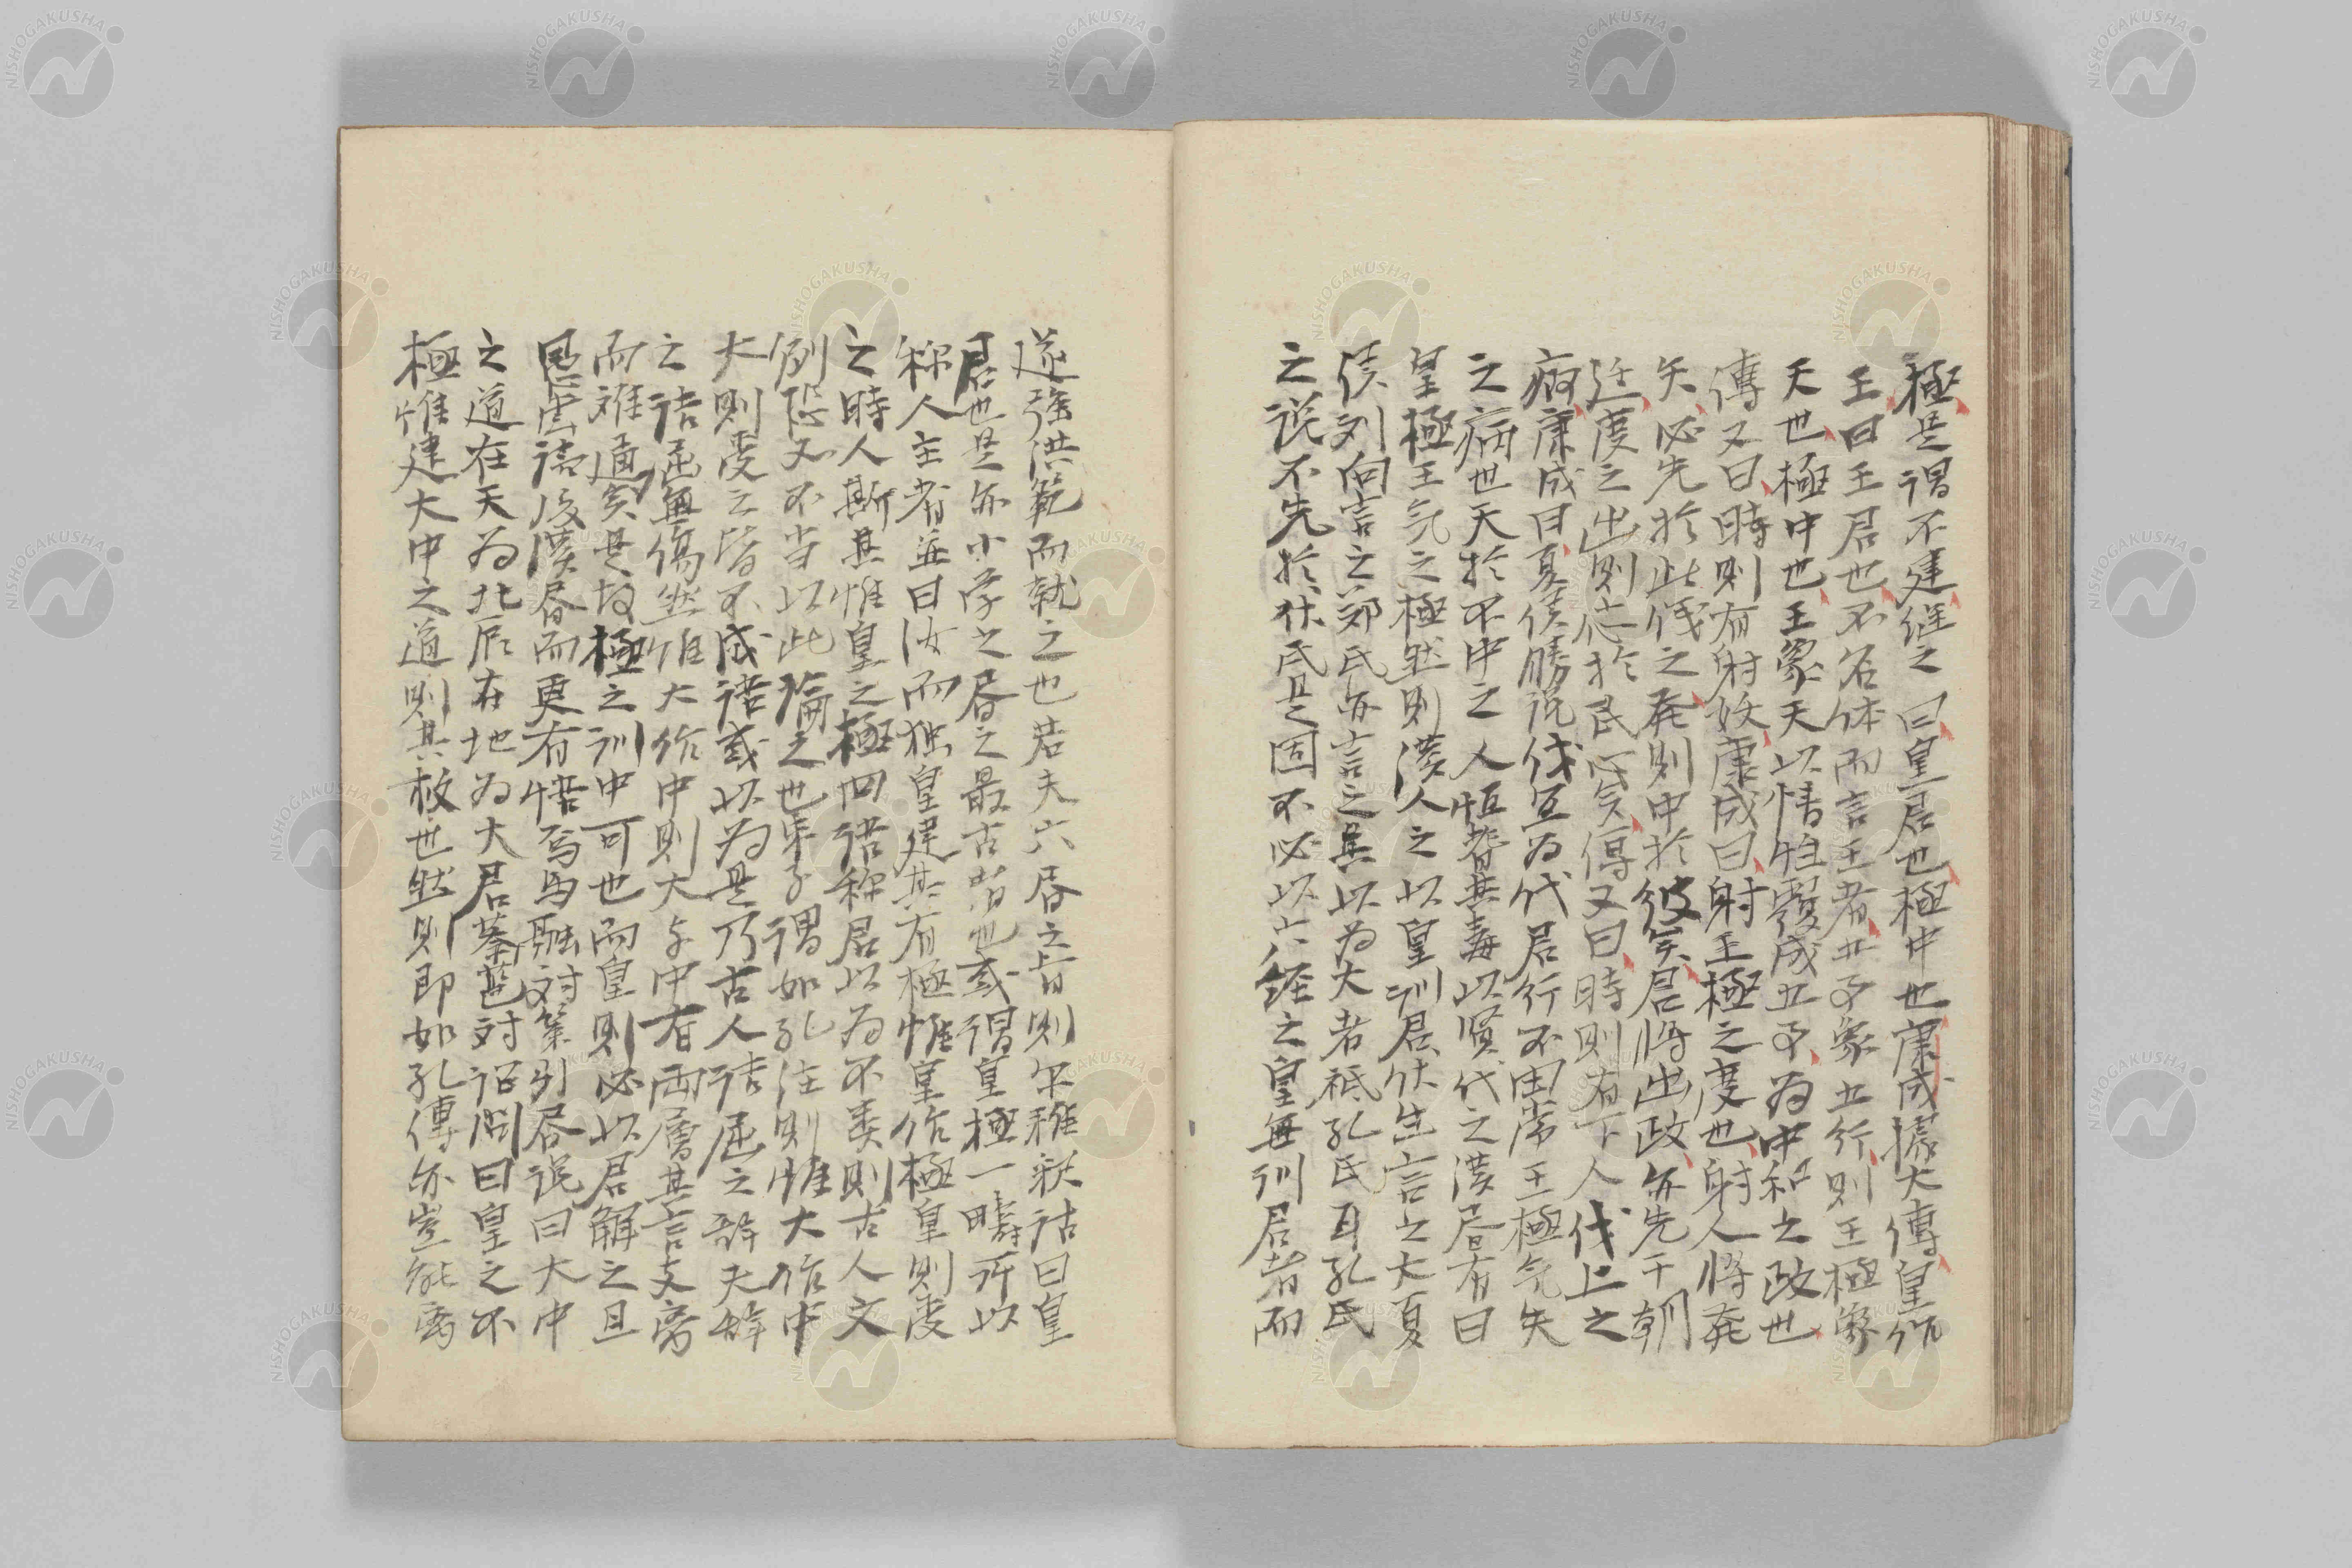 極是謂不建継之曰皇君也極中也康成據大傳皇作
王曰王君也不名体而言王者五事象五行則王極象
天也極中也王象天以情性覆成五事為中和之政也
傳又曰時則有射妖康成曰射王極之度也射人將発
矢必先於此儀之発則中於彼矣君將出政亦先于朝
廷度之出則応於民心矣傳又曰時則有下人伐上之
痾康成曰夏侯勝説伐宜為代君行不由常王極気失
之病也天於不中之人恒耆其毒以賢代之漢居有曰
皇極王気之極然則漢人之以皇訓君伏生言之大夏
侯刘向言之郊氏亦言之其以為大者祗孔氏耳孔氏
之説不先於伏氏是固不必以六経之皇無訓君者而
遂強洪範而就之也若夫六居之旨則尓雅釈詁曰皇
君也是亦小学之居之最古者也或謂皇極一疇所以
称人主者並曰汝而独皇建其有極惟皇作極皇則受
之時人斯其惟皇之極四語称君以為不类則古人文
例恐又不当以此論之也朱子謂如孔注則惟大作中
大則受之皆不成語或以為是乃古人詰屈之辞夫辞
之詰屈無傷然惟大作中則大与中有両層其言支旁
而难通矣是故極之訓中可也而皇則必以君解之且
愚嘗読後漢居而更有悟焉馬融対策引居説曰大中
之道在天為北辰在地為大君蔡邕対詔問曰皇之不
極惟建大中之道則其救也然則即如孔傳亦豈能离